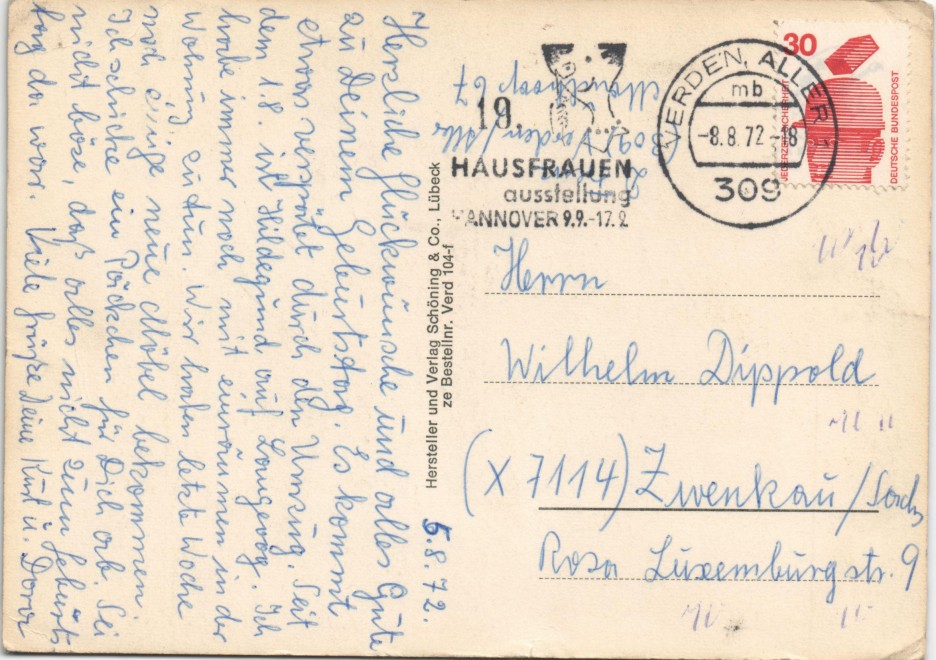 5.8.72.
Herzliche Glückwünsche und alles Gute
zu Deinem Geburtstag. Es kommt
etwas verspätet durch den Umzug. Seit
dem 1.8. ist Hildegund auf Langeoog. Ich
habe immer noch mit einräumen in der
Wohnung zu tun. Wir haben letzte Woche
noch einige neue Möbel bekommen.
Ich schicke ein Päckchen für Dich ab. Sei
nicht böse, daß alles nicht zum Geburts-
tag da war. Viele Grüße Deine Kurt u. Dora
Hersteller und Verlag Schöning & Co., Lübeck
ze Bestellnr. Verd 104-f
309 Verden/Aller
19.
HAUSFRAUEN
ausstellung
HANNOVER 9.9.-17.9.
VERDEN, ALLER
mb
-8.8.72-18
309
30
JEDERZEIT SICHERHEIT
DEUTSCHE BUNDESPOST
Herrn
Wilhelm Dippold
(X 7114) Zwenkau/Sachs
Rosa Luxemburgstr. 9